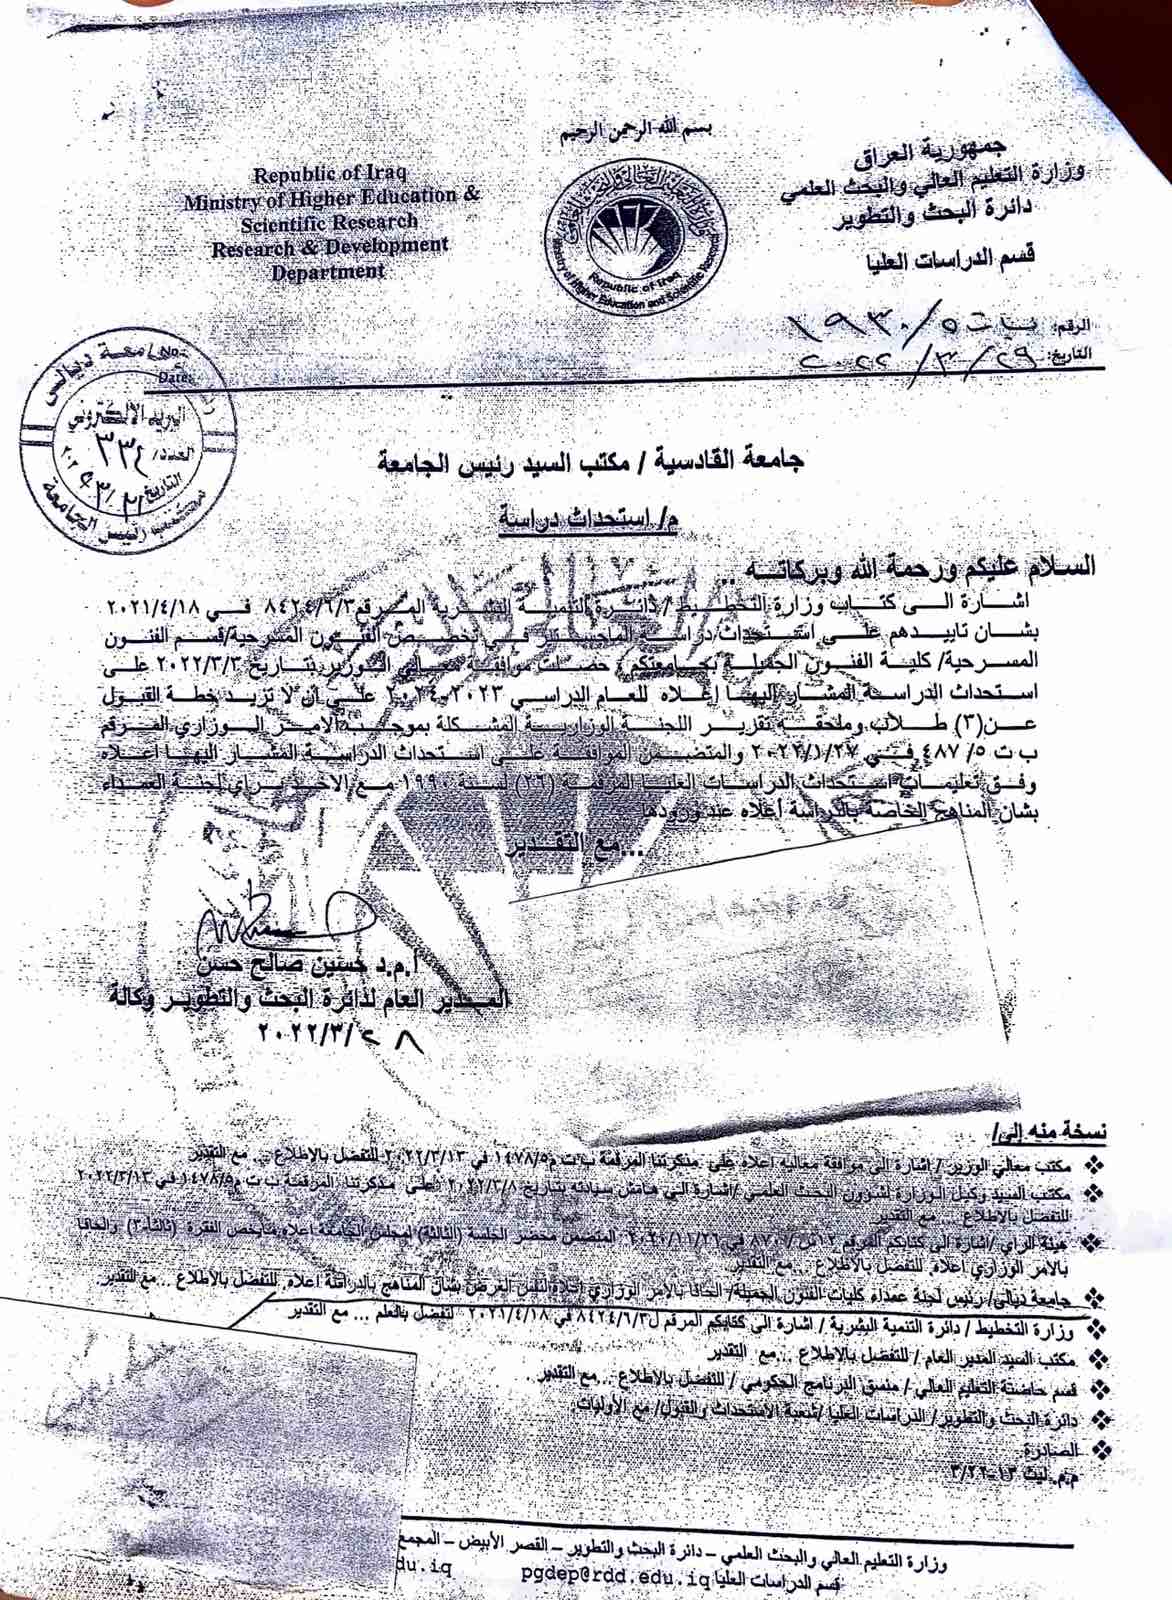 بسم الله الرحمن الرحيم
جمهورية العراق
وزارة التعليم العالي والبحث العلمي
دائرة البحث والتطوير
قسم الدراسات العليا
Republic of Iraq
Ministry of Higher Education &
Scientific Research
Research & Development
Department
Republic of Iraq
Ministry of Higher Education and Scientific Research
الرقم: ب ت ٥/ ١٩٣٠
التاريخ: ٢٩/ ٣/ ٢٠٢٢
No:
Date:
جامعة ديالى
البريد الالكتروني
العدد/ ٣٣٤
التاريخ
رئيس الجامعة
جامعة القادسية / مكتب السيد رئيس الجامعة
م/ استحداث دراسة
السلام عليكم ورحمة الله وبركاته ..
اشارة الى كتاب وزارة التخطيط / دائرة التنمية البشرية المرقم ٨٤٢٤/٦/٣ في ٢٠٢١/٤/١٨
بشان تاييدهم على استحداث دراسة الماجستير في تخصص الفنون المسرحية/قسم الفنون
المسرحية/ كلية الفنون الجميلة بجامعتكم , حصلت موافقة معالي الوزير بتاريخ ٢٠٢٢/٣/٣ على
استحداث الدراسة المشار اليها إعلاه للعام الدراسي ٢٠٢٣-٢٠٢٤ على ان لا تزيد خطة القبول
عن(٣) طلاب وملحقه تقرير اللجنة الوزارية المشكلة بموجب الامر الوزاري المرقم
ب ت ٥/ ٤٨٧ في ٢٠٢٢/١/٢٧ والمتضمن الموافقة على استحداث الدراسة المشار اليها اعلاه
وفق تعليمات استحداث الدراسات العليا المرقمة (٢٦) لسنة ١٩٩٠ مع الاخذ براي لجنة العمداء
بشان المناهج الخاصة بالدراسة أعلاه عند ورودها
...مع التقدير
أ.م.د حسين صالح حسن
المدير العام لدائرة البحث والتطوير وكالة
٢٠٢٢/٣/٢٨
نسخة منه إلى/
❖ مكتب معالي الوزير / اشارة الى موافقة معاليه اعلاه على مذكرتنا المرقمة ب ت م١٤٧٨/٥ في ٢٠٢٢/٣/١٣ للتفضل بالاطلاع ... مع التقدير
❖ مكتب السيد وكيل الوزارة لشؤون البحث العلمي /اشارة الى هامش سيادته بتاريخ ٢٠٢٢/٣/٨ على مذكرتنا المرقمة ب ت م١٤٧٨/٥ في ٢٠٢٢/٣/١٣
للتفضل بالاطلاع ... مع التقدير
❖ هيئة الراي /اشارة الى كتابكم المرقم المتضمن محضر الجلسة (الثالثة) لمجلس الجامعة اعلاه مايخص الفقرة (ثالثا-٣) والحاقا
بالامر الوزاري اعلاه للتفضل بالاطلاع ... مع التقدير
❖ جامعة ديالى/ رئيس لجنة عمداء كليات الفنون الجميلة/ الحاقا بالامر الوزاري اعلاه لنفس الغرض بشان المناهج بالدراسة اعلاه للتفضل بالاطلاع ... مع التقدير.
❖ وزارة التخطيط / دائرة التنمية البشرية / اشارة الى كتابكم المرقم ل٨٤٢٤/٦/٣ في ٢٠٢١/٤/١٨ لتفضل بالعلم ... مع التقدير
❖ مكتب السيد المدير العام / للتفضل بالاطلاع ...مع التقدير
❖ قسم حاضنة التعليم العالي / منسق البرنامج الحكومي / للتفضل بالاطلاع ...مع التقدير.
❖ دائرة البحث والتطوير/ الدراسات العليا /شعبة الاستحداث والقبول/ مع الأوليات.
❖ الصادرة
م.م. ليث ١٣-٣/٢٢
وزارة التعليم العالي والبحث العلمي – دائرة البحث والتطوير – القصر الأبيض – المجمع
قسم الدراسات العليا pgdep@rdd.edu.iq
du.iq